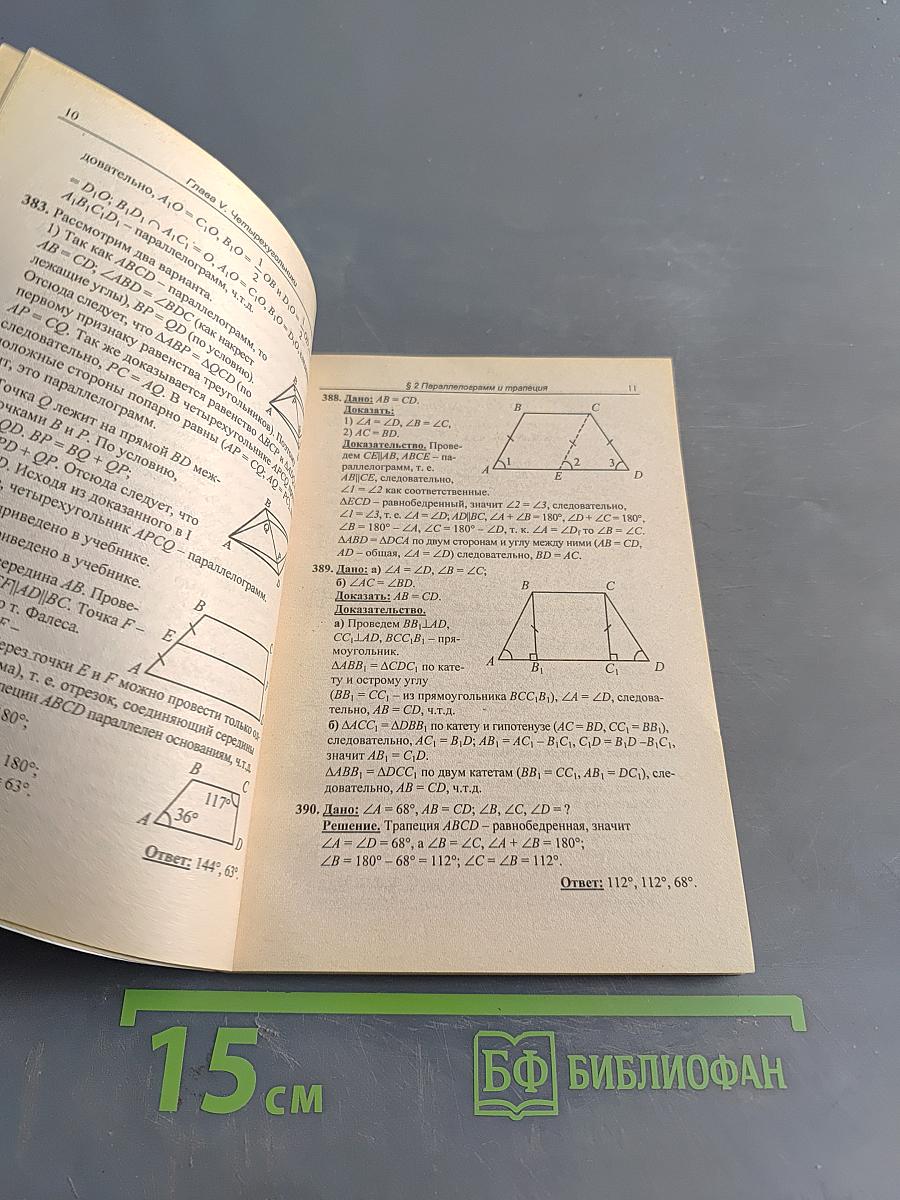 10
Глава V. Четырехугольники
довательно, A₁O = C₁O, B₁O = 1/2 OB и D₁O = 1/2
= D₁O; B₁D₁ ∩ A₁C₁ = O, A₁O = C₁O, B₁O = D₁O,
A₁B₁C₁D₁ – параллелограмм, ч.т.д.
383. Рассмотрим два варианта.
1) Так как ABCD – параллелограмм, то
AB = CD; ∠ABD = ∠BDC (как накрест
лежащие углы), BP = QD (по условию).
Отсюда следует, что ΔABP = ΔQCD (по
первому признаку равенства треугольников).
AP = CQ. Так же доказывается равенство ΔBCP и
следовательно, PC = AQ. В четырехугольнике APCQ
положные стороны попарно равны (AP = CQ, AQ = PC
т, это параллелограмм.
Точка Q лежит на прямой BD меж-
очками B и P. По условию,
QD. BP = BQ + QP;
PD + QP. Отсюда следует, что
D. Исходя из доказанного в I
, четырехугольник APCQ – параллелограмм.
приведено в учебнике.
риведено в учебнике.
ередина AB. Прове-
EF||AD||BC. Точка F –
о т. Фалеса.
F –
ерез точки E и F можно провести только
ма), т. е. отрезок, соединяющий середины
пеции ABCD параллелен основаниям, ч.т.д.
80°;
180°;
= 63°.
Ответ: 144°, 63°.
A
B
A
D
B
E
A
B
C
117°
A
36°
D
§ 2 Параллелограмм и трапеция 11
388. Дано: AB = CD.
Доказать:
1) ∠A = ∠D, ∠B = ∠C,
2) AC = BD.
Доказательство. Прове-
дем CE||AB, ABCE – па-
раллелограмм, т. е.
AB||CE, следовательно,
∠1 = ∠2 как соответственные.
B C
A 1 2 3 D
E
ΔECD – равнобедренный, значит ∠2 = ∠3, следовательно,
∠1 = ∠3, т. е. ∠A = ∠D; AD||BC, ∠A + ∠B = 180°, ∠D + ∠C = 180°,
∠B = 180° – ∠A, ∠C = 180° – ∠D, т. к. ∠A = ∠D, то ∠B = ∠C.
ΔABD = ΔDCA по двум сторонам и углу между ними (AB = CD,
AD – общая, ∠A = ∠D) следовательно, BD = AC.
389. Дано: а) ∠A = ∠D, ∠B = ∠C;
б) ∠AC = ∠BD.
Доказать: AB = CD.
Доказательство.
а) Проведем BB₁⊥AD,
CC₁⊥AD, BCC₁B₁ – пря-
моугольник.
ΔABB₁ = ΔCDC₁ по кате-
ту и острому углу
B C
A B₁ C₁ D
(BB₁ = CC₁ – из прямоугольника BCC₁B₁), ∠A = ∠D, следова-
тельно, AB = CD, ч.т.д.
б) ΔACC₁ = ΔDBB₁ по катету и гипотенузе (AC = BD, CC₁ = BB₁),
следовательно, AC₁ = B₁D; AB₁ = AC₁ – B₁C₁, C₁D = B₁D –B₁C₁,
значит AB₁ = C₁D.
ΔABB₁ = ΔDCC₁ по двум катетам (BB₁ = CC₁, AB₁ = DC₁), сле-
довательно, AB = CD, ч.т.д.
390. Дано: ∠A = 68°, AB = CD; ∠B, ∠C, ∠D = ?
Решение. Трапеция ABCD – равнобедренная, значит
∠A = ∠D = 68°, а ∠B = ∠C, ∠A + ∠B = 180°;
∠B = 180° – 68° = 112°; ∠C = ∠B = 112°.
Ответ: 112°, 112°, 68°.
15 см
БФ БИБЛИОФАН